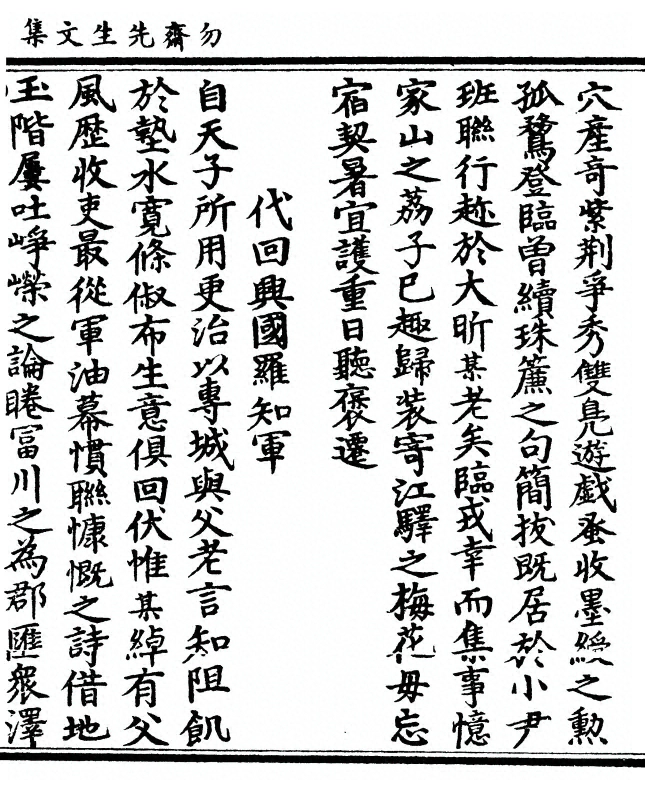 勿齋先生文集
穴產奇紫荆爭秀雙鳧遊戲蚤收墨綬之勲
孤鶩登臨曽續珠簾之句簡拔既居於小尹
班聯行趂於大昕某老矣臨戎幸而集事憶
家山之荔子已趣歸装寄江驛之梅花毋忘
宿契暑宜護重日聽褒遷
代回興國羅知軍
自天子所用更治以專城與父老言知阻飢
於墊水寛條俶布生意俱回伏惟某綽有父
風歴收吏最從軍油幕慣聯慷慨之詩借地
玉階屢吐崢嶸之論睠冨川之為郡匯衆澤